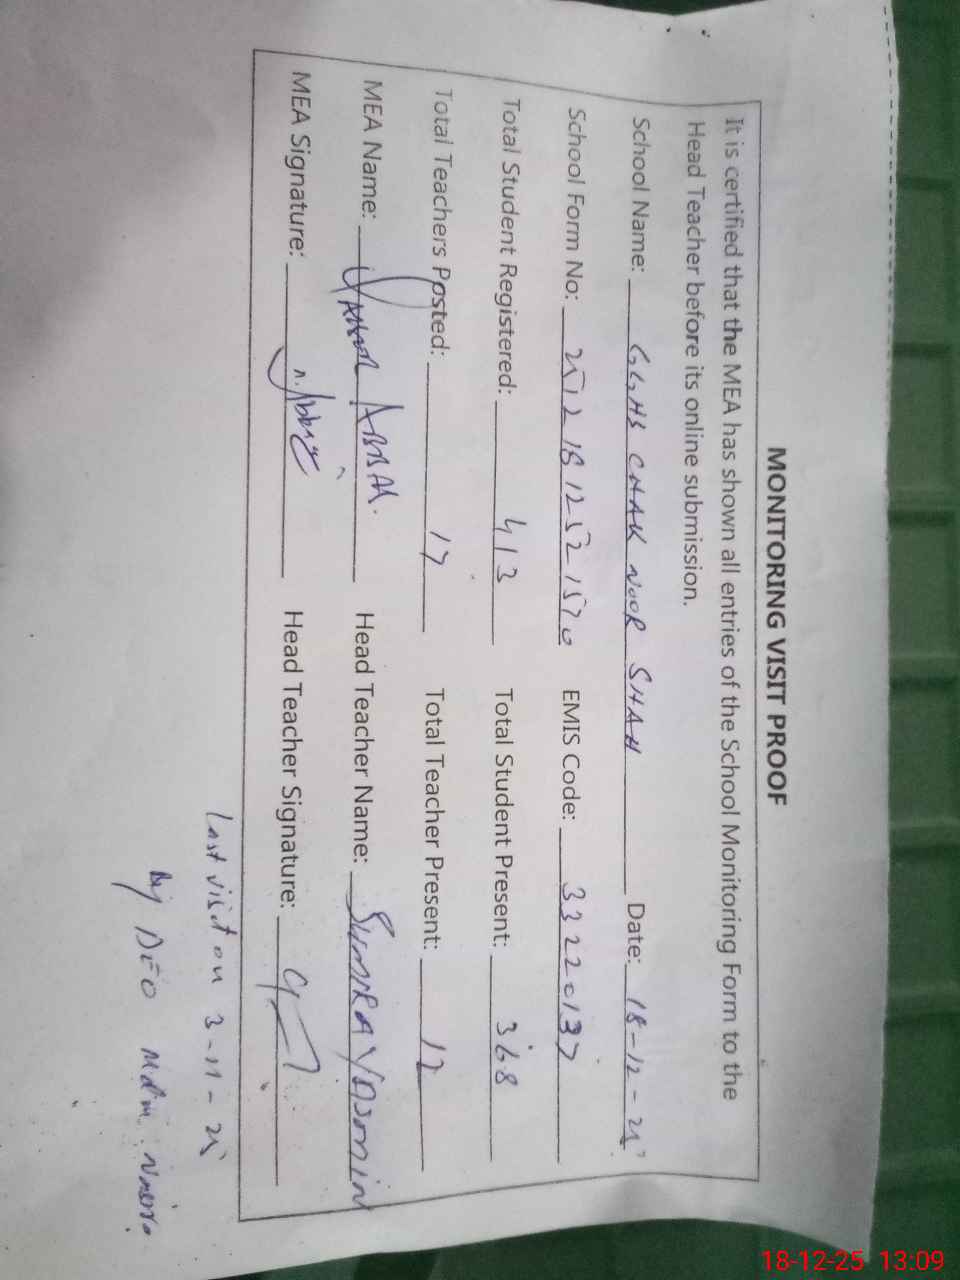 MONITORING VISIT PROOF
It is certified that the MEA has shown all entries of the School Monitoring Form to the
Head Teacher before its online submission.
School Name: GGHS CHAK NOOR SHAH Date: 18-12-25
School Form No: 25121812521570 EMIS Code: 33220137
Total Student Registered: 413 Total Student Present: 368
Total Teachers Posted: 17 Total Teacher Present: 12
MEA Name: ABBAS. Head Teacher Name: SUMIRA YASMIN
MEA Signature: Head Teacher Signature:
Last visit on 3-11-25
By DEO Mdm.
18-12-25 13:09